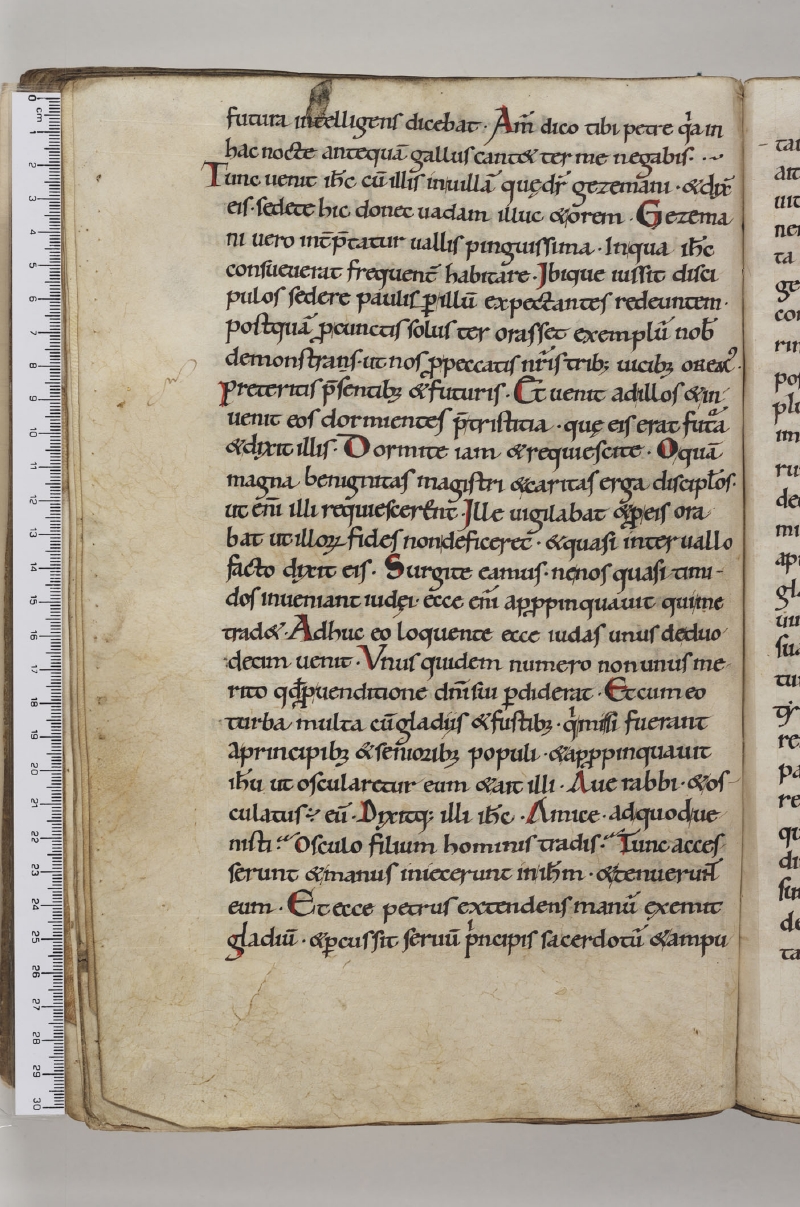 futura intelligens dicebat · Am̄ dico tibi petre qͥa in
hac nocte antequā gallus cant& ter me negabis ·
Tunc uenit ihc̄ cū illis in uillā quę dr̄ gezemani · & dix̄
eis · sedete hic donec uadam illuc & orem · Gezema
ni uero int̄p̄tatur uallis pinguissima · In qua ihc̄
consueuerat frequent̄ habitare · Ibique iussit disci
pulos sedere paulisꝑ illū expectantes redeuntem ·
postquā ꝓ cunctis solus ter orasset exemplū nob̄
demonstrans · ut nos ꝓ peccatis nr̄is tribꝫ uicibꝫ
preteritis p̄sentibꝫ & futuris · Et uenit ad illos & in
uenit eos dormientes p̄ tristitia · quę eis erat futᵃ̄a
& dixit illis · Dormite iam & requiescite · O quā
magna benignitas magistri & caritas erga discipłos ·
ut eni̅ illi requiescerent · Ille uigilabat & ꝓ eis ora
bat ut illoꝝ fides non deficeret · & quasi interuallo
facto dixit eis · Surgite eamus · ne nos quasi timi-
dos inueniant iudęi · ecce eni̅ appropinquauit qui me
trad& · Adhuc eo loquente ecce iudas unus de duo
decim uenit · Vnus quidem numero non unus me
rito qđ ꝓ uenditione dn̄i sui ꝑdiderat · Et cum eo
turba multa cū gladiis & fustibꝫ · qͥ misi fuerant
a principibꝫ & senioribꝫ populi · & appropinquauit
ihū ut oscularetur eum & ait illi · Aue rabbi · & os-
culatus ÷ eū · Dixitqꝫ illi ihc̄ · Amice · ad quod ue
nisti · Osculo filium hominis tradis · Tunc acces
serunt & manus iniecerunt in ihm̄ · & tenuerunt
eum · Et ecce petrus extendens manū exemit
gladiū · & ꝑcussit seruū pͥncipis sacerdotū & ampu